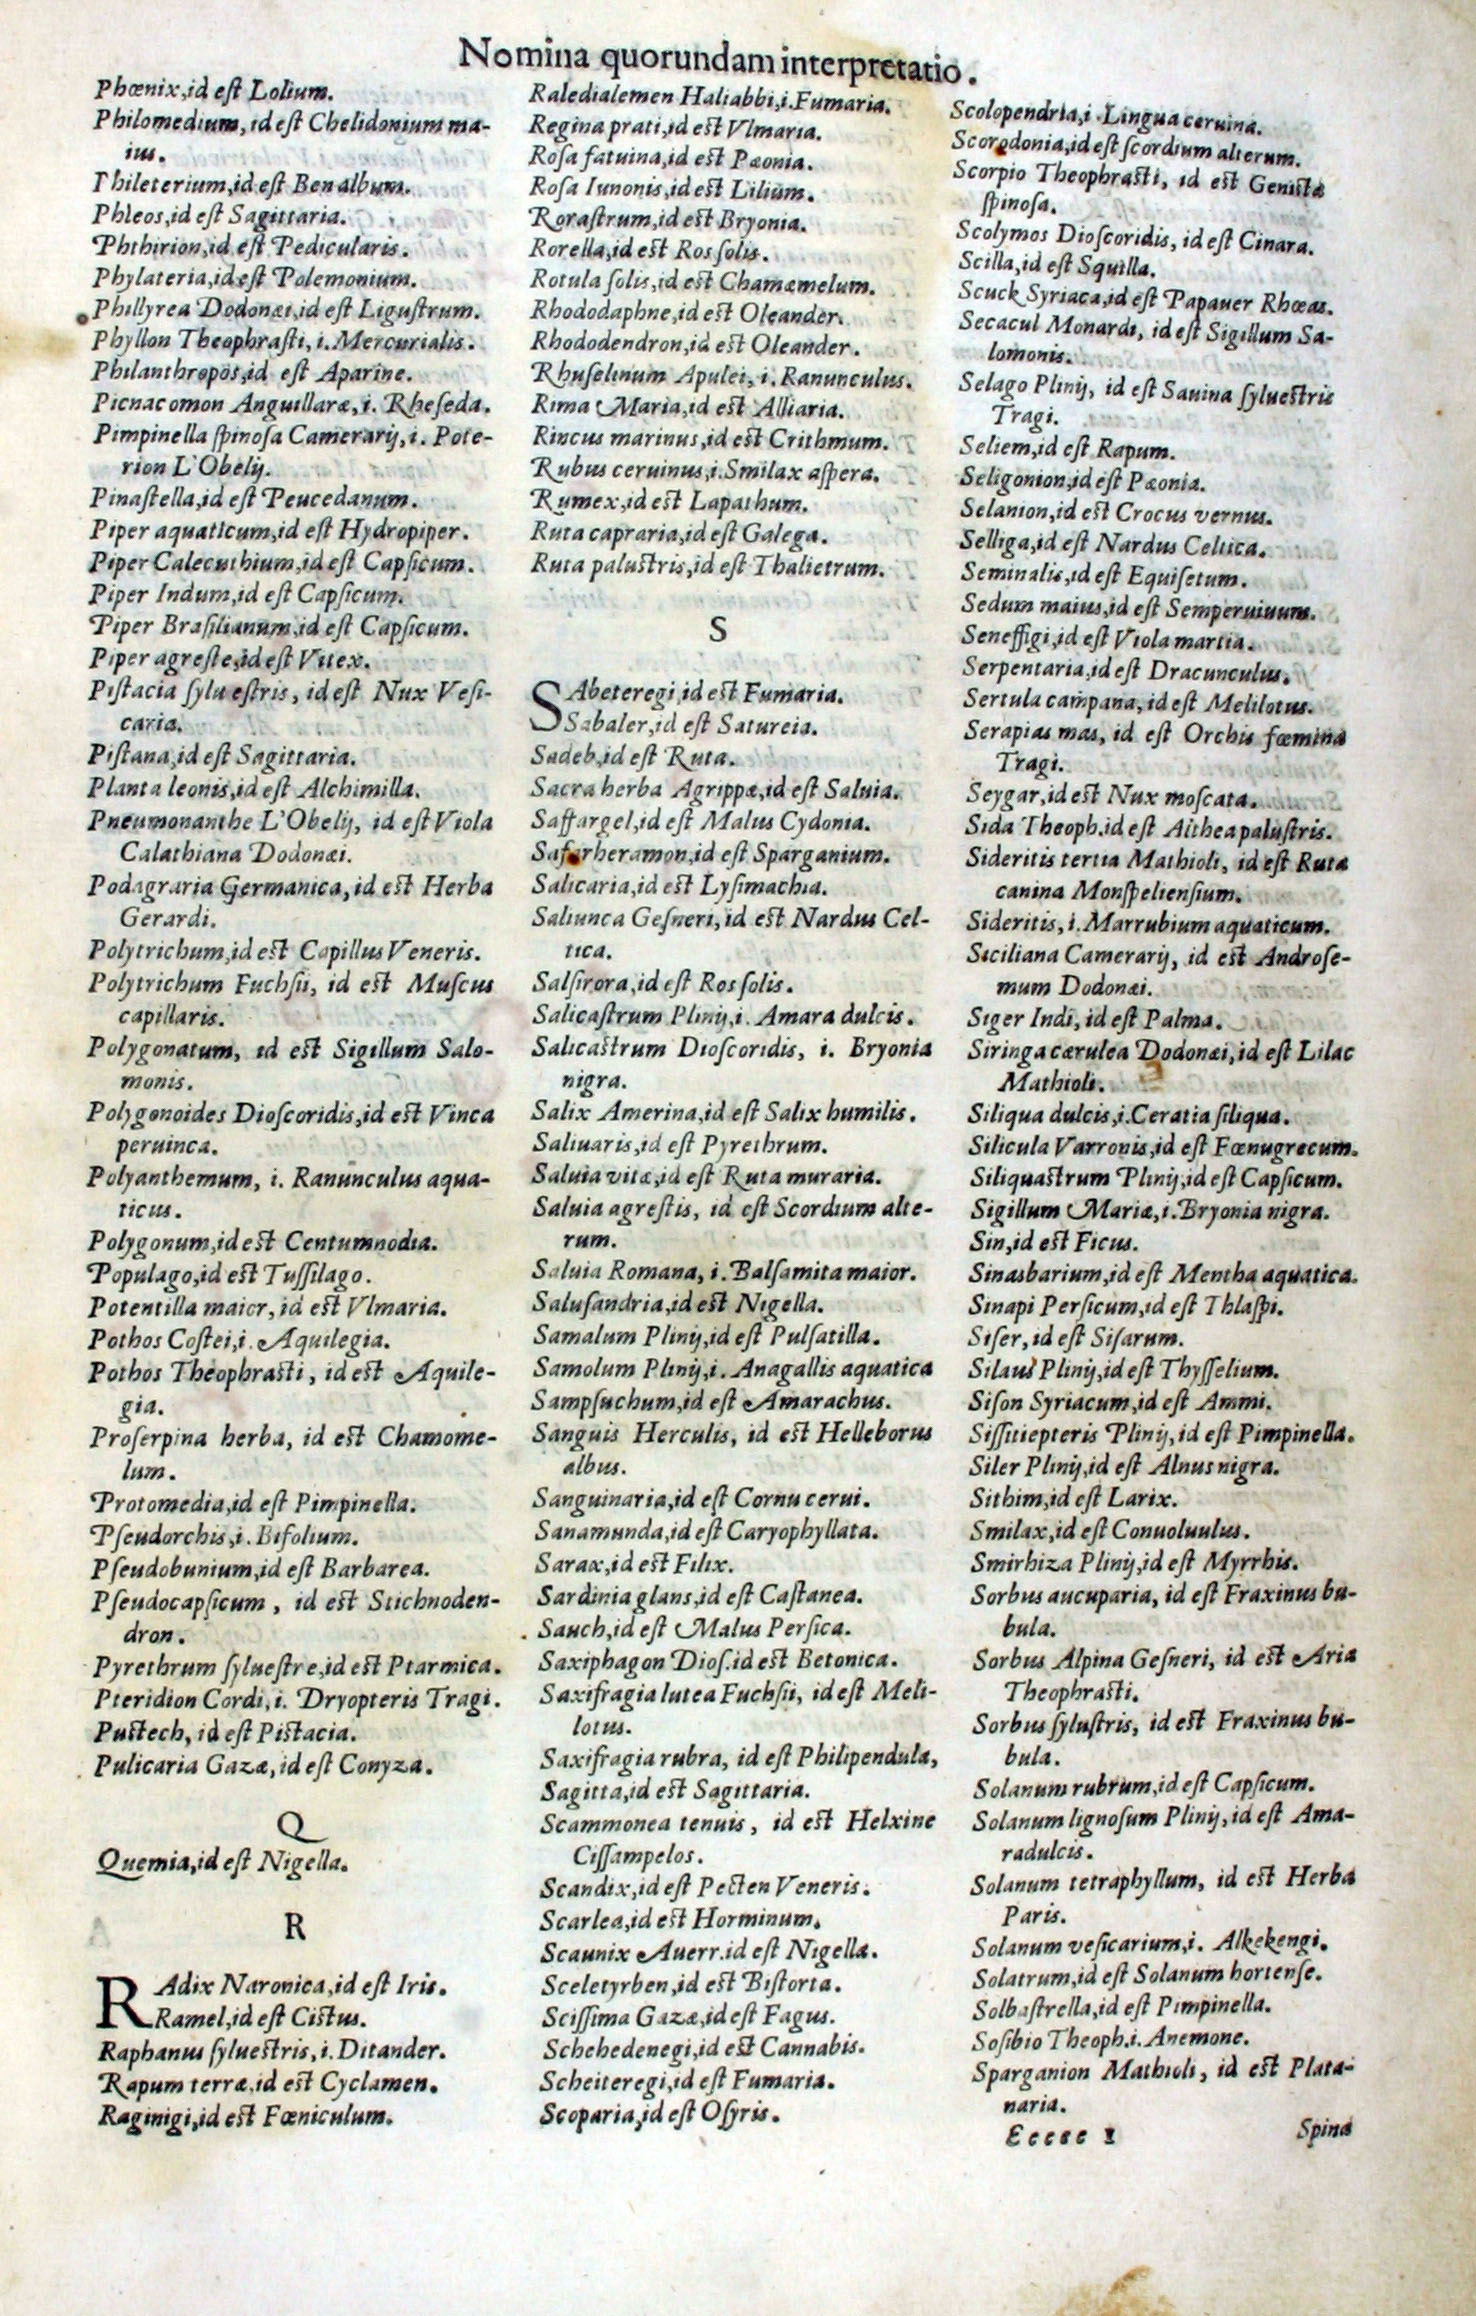 Nomina quorundam interpretatio.
Phœnix, id eſt Lolium.
Philomedium, id eſt Chelidonium ma-
ius.
Thileterium, id eſt Ben album.
Phleos, id eſt Sagittaria.
Phthirion, id eſt Pedicularis.
Phylateria, id eſt Polemonium.
Phillyrea Dodonæi, id eſt Liguſtrum.
Phyllon Theophraſti, i. Mercurialis.
Philanthropos, id eſt Aparine.
Picnacomon Anguillaræ, i. Rheſeda.
Pimpinella ſpinoſa Camerarij, i. Pote-
rion L'Obelij.
Pinaſtella, id eſt Peucedanum.
Piper aquaticum, id eſt Hydropiper.
Piper Calecuthium, id eſt Capſicum.
Piper Indum, id eſt Capſicum.
Piper Braſilianum, id eſt Capſicum.
Piper agreſte, id eſt Vitex.
Piſtacia ſylueſtris, id eſt Nux Veſi-
caria.
Piſtana, id eſt Sagittaria.
Planta leonis, id eſt Alchimilla.
Pneumonanthe L'Obelij, id eſt Viola
Calathiana Dodonæi.
Podagraria Germanica, id eſt Herba
Gerardi.
Polytrichum, id eſt Capillus Veneris.
Polytrichum Fuchſii, id eſt Muſcus
capillaris.
Polygonatum, id eſt Sigillum Salo-
monis.
Polygonoides Dioſcoridis, id eſt Vinca
peruinca.
Polyanthemum, i. Ranunculus aqua-
ticus.
Polygonum, id eſt Centumnodia.
Populago, id eſt Tuſſilago.
Potentilla maior, id eſt Vlmaria.
Pothos Coſtei, i. Aquilegia.
Pothos Theophraſti, id eſt Aquile-
gia.
Proſerpina herba, id eſt Chamome-
lum.
Protomedia, id eſt Pimpinella.
Pſeudorchis, i. Bifolium.
Pſeudobunium, id eſt Barbarea.
Pſeudocapſicum, id eſt Stichnoden-
dron.
Pyrethrum ſylueſtre, id eſt Ptarmica.
Pteridion Cordi, i. Dryopteris Tragi.
Puſtech, id eſt Piſtacia.
Pulicaria Gazæ, id eſt Conyza.
Q
Quemia, id eſt Nigella.
R
RAdix Naronica, id eſt Iris.
Ramel, id eſt Ciſtus.
Raphanus ſylueſtris, i. Ditander.
Rapum terræ, id eſt Cyclamen.
Raginigi, id eſt Fœniculum.
Raledialemen Haliabbi, i. Fumaria.
Regina prati, id eſt Vlmaria.
Roſa fatuina, id eſt Pæonia.
Roſa Iunonis, id eſt Lilium.
Roraſtrum, id eſt Bryonia.
Rorella, id eſt Ros ſolis.
Rotula ſolis, id eſt Chamæmelum.
Rhododaphne, id eſt Oleander.
Rhododendron, id eſt Oleander.
Rhuſelinum Apulei, i. Ranunculus.
Rima Maria, id eſt Alliaria.
Rincus marinus, id eſt Crithmum.
Rubus ceruinus, i. Smilax aſpera.
Rumex, id eſt Lapathum.
Ruta capraria, id eſt Galega.
Ruta paluſtris, id eſt Thalietrum.
S
SAbeteregi, id eſt Fumaria.
Sabaler, id eſt Satureia.
Sadeb, id eſt Ruta.
Sacra herba Agrippæ, id eſt Saluia.
Saffargel, id eſt Malus Cydonia.
Safarheramon, id eſt Sparganium.
Salicaria, id eſt Lyſimachia.
Saliunca Geſneri, id eſt Nardus Cel-
tica.
Salſirora, id eſt Ros ſolis.
Salicaſtrum Plinij, i. Amara dulcis.
Salicaſtrum Dioſcoridis, i. Bryonia
nigra.
Salix Amerina, id eſt Salix humilis.
Saliuaris, id eſt Pyrethrum.
Saluia vitæ, id eſt Ruta muraria.
Saluia agreſtis, id eſt Scordium alte-
rum.
Saluia Romana, i. Balſamita maior.
Saluſandria, id eſt Nigella.
Samalum Plinij, id eſt Pulſatilla.
Samolum Plinij, i. Anagallis aquatica
Sampſuchum, id eſt Amarachus.
Sanguis Herculis, id eſt Helleborus
albus.
Sanguinaria, id eſt Cornu cerui.
Sanamunda, id eſt Caryophyllata.
Sarax, id eſt Filix.
Sardinia glans, id eſt Caſtanea.
Sauch, id eſt Malus Perſica.
Saxiphagon Dioſ. id eſt Betonica.
Saxifragia lutea Fuchſii, id eſt Meli-
lotus.
Saxifragia rubra, id eſt Philipendula,
Sagitta, id eſt Sagittaria.
Scammonea tenuis, id eſt Helxine
Ciſſampelos.
Scandix, id eſt Pecten Veneris.
Scarlea, id eſt Horminum.
Scaunix Auerr. id eſt Nigella.
Sceletyrben, id eſt Biſtorta.
Sciſſima Gazæ, id eſt Fagus.
Schehedenegi, id eſt Cannabis.
Scheiteregi, id eſt Fumaria.
Scoparia, id eſt Oſyris.
Scolopendria, i. Lingua ceruina.
Scorodonia, id eſt ſcordium alterum.
Scorpio Theophraſti, id eſt Geniſta
ſpinoſa.
Scolymos Dioſcoridis, id eſt Cinara.
Scilla, id eſt Squilla.
Scuck Syriaca, id eſt Papauer Rhœas.
Secacul Monardi, id eſt Sigillum Sa-
lomonis.
Selago Plinij, id eſt Sauina ſylueſtris
Tragi.
Seliem, id eſt Rapum.
Seligonion, id eſt Pæonia.
Selanion, id eſt Crocus vernus.
Selliga, id eſt Nardus Celtica.
Seminalis, id eſt Equiſetum.
Sedum maius, id eſt Semperuiuum.
Seneffigi, id eſt Viola martia.
Serpentaria, id eſt Dracunculus.
Sertula campana, id eſt Melilotus.
Serapias mas, id eſt Orchis fœmina
Tragi.
Seygar, id eſt Nux moſcata.
Sida Theoph. id eſt Althea paluſtris.
Sideritis tertia Mathioli, id eſt Ruta
canina Monſpelienſium.
Sideritis, i. Marrubium aquaticum.
Siciliana Camerarij, id eſt Androſe-
mum Dodonæi.
Siger Indi, id eſt Palma.
Siringa cærulea Dodonæi, id eſt Lilac
Mathioli.
Siliqua dulcis, i. Ceratia ſiliqua.
Silicula Varronis, id eſt Fœnugrecum.
Siliquaſtrum Plinij, id eſt Capſicum.
Sigillum Mariæ, i. Bryonia nigra.
Sin, id eſt Ficus.
Sinasbarium, id eſt Mentha aquatica.
Sinapi Perſicum, id eſt Thlaſpi.
Siſer, id eſt Siſarum.
Silaus Plinij, id eſt Thyſſelium.
Siſon Syriacum, id eſt Ammi.
Siſſitiepteris Plinij, id eſt Pimpinella.
Siler Plinij, id eſt Alnus nigra.
Sithim, id eſt Larix.
Smilax, id eſt Conuoluulus.
Smirhiza Plinij, id eſt Myrrhis.
Sorbus aucuparia, id eſt Fraxinus bu-
bula.
Sorbus Alpina Geſneri, id eſt Aria
Theophraſti.
Sorbus ſyluſtris, id eſt Fraxinus bu-
bula.
Solanum rubrum, id eſt Capſicum.
Solanum lignoſum Plinij, id eſt Ama-
radulcis.
Solanum tetraphyllum, id eſt Herba
Paris.
Solanum veſicarium, i. Alkekengi.
Solatrum, id eſt Solanum hortenſe.
Solbaſtrella, id eſt Pimpinella.
Soſibio Theoph. i. Anemone.
Sparganion Mathioli, id eſt Plata-
naria.
Eeeee 1
Spina